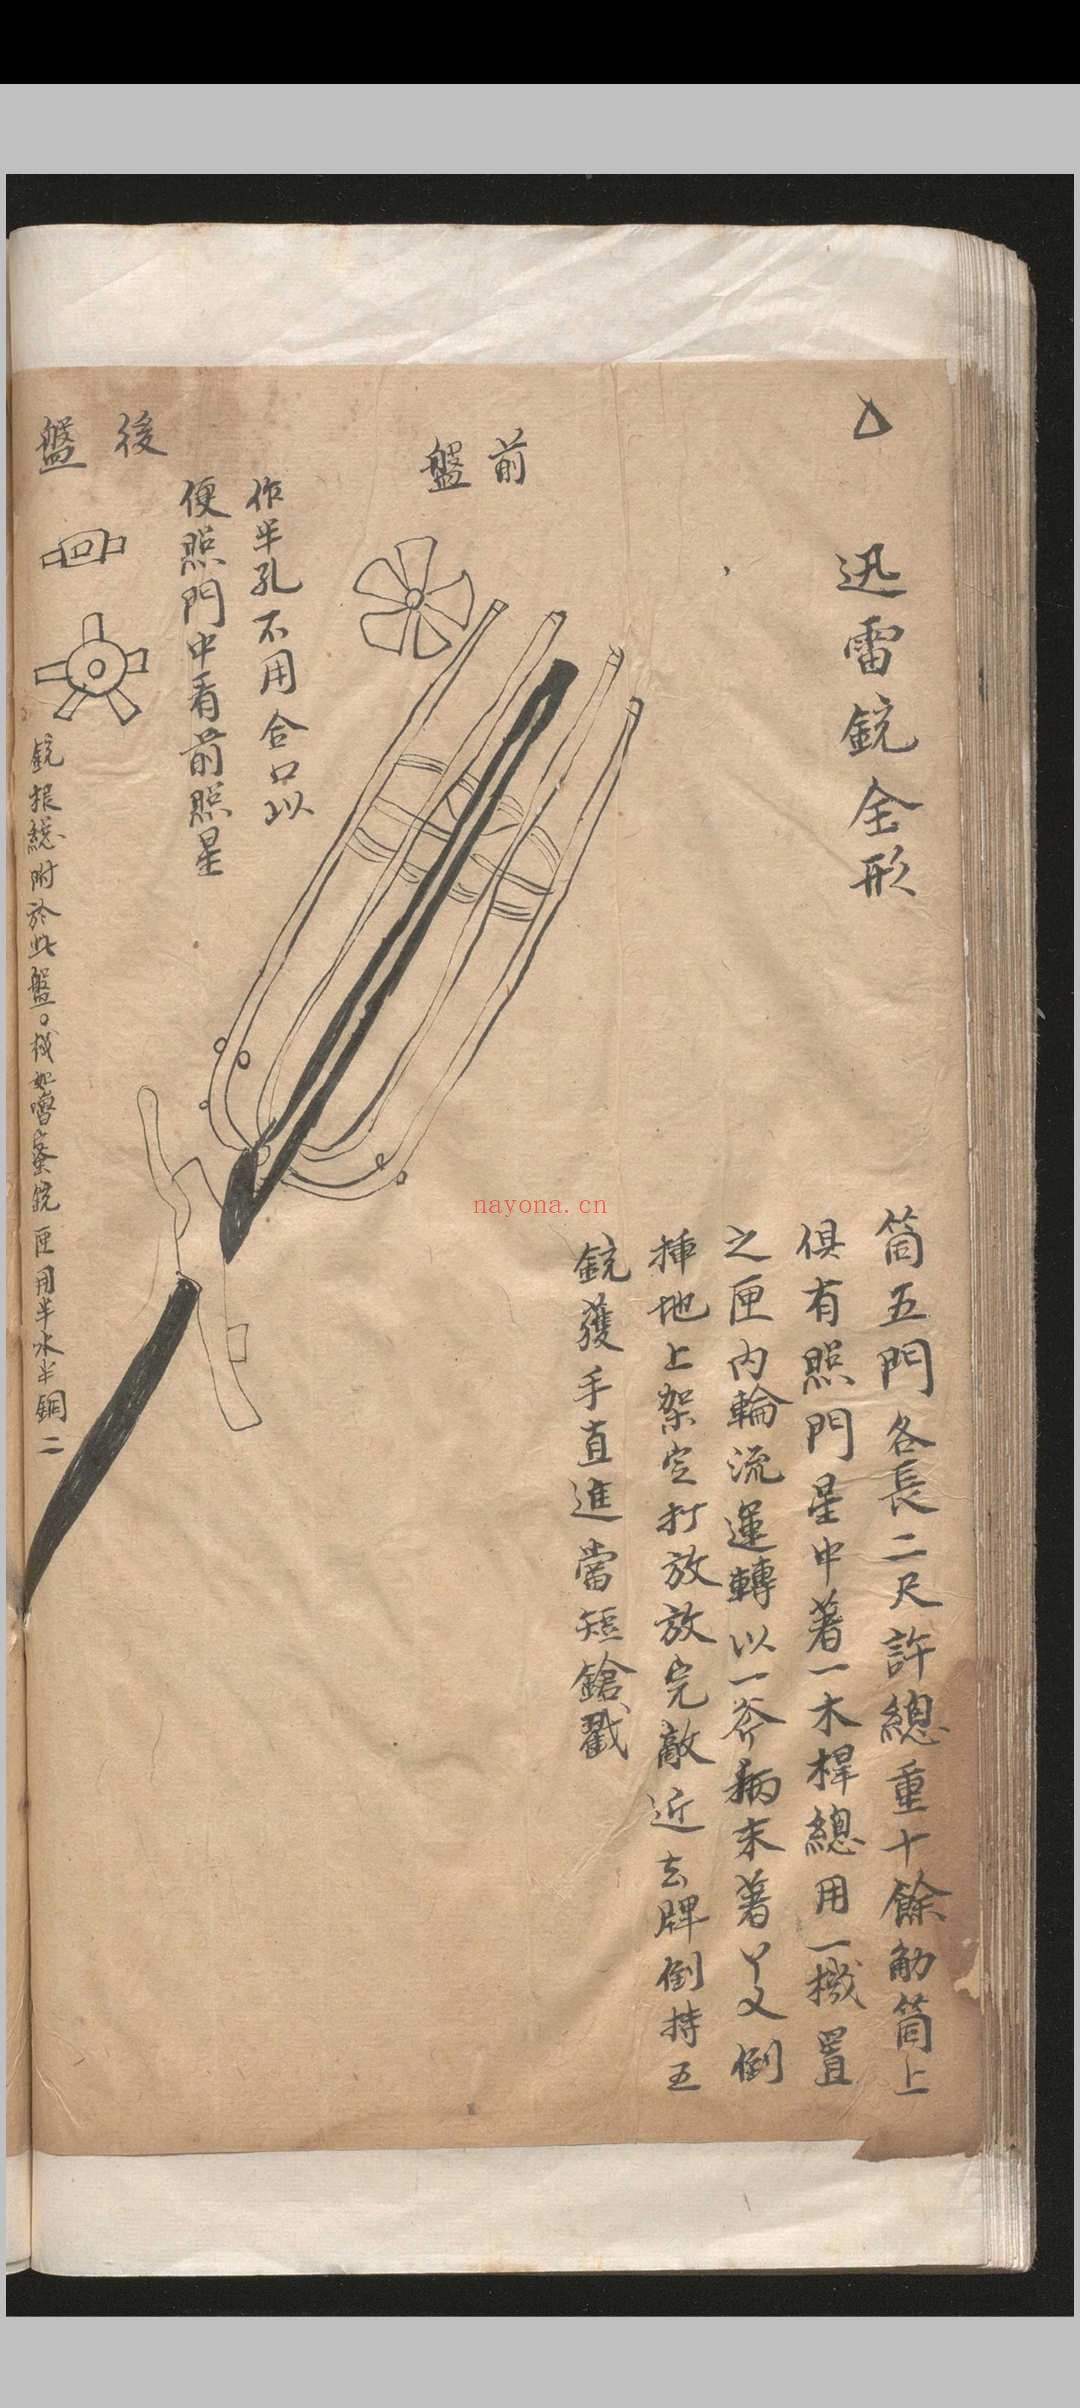 迅雷銃全形
筒五門各長二尺許總重十餘觔筒上
俱有照門星中著一木桿總用一機置
之匣內輪流運轉以一斧柄末著丫叉倒
插地上架定打放放完敵近去牌倒持五
銃蒦手直進當短鎗戳
前
盤
作半孔不用合口以
便照門中看前照星
後
盤
銃根總附於此盤。機如嚕蜜銃匣用半木半銅二
nayona.cn